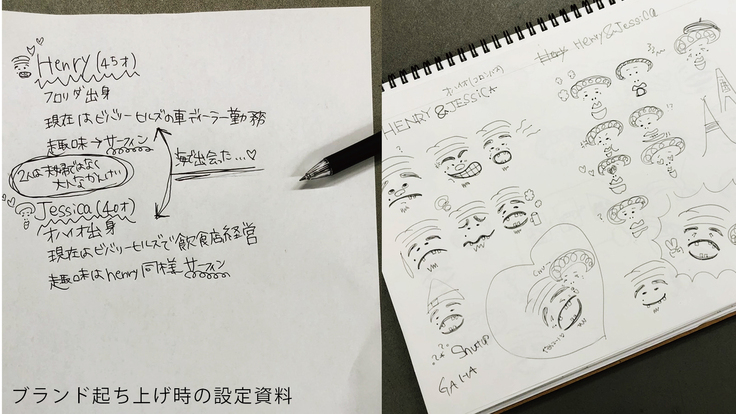 Henry (45才)
フロリダ出身
現在はビバリーヒルズの車ディーラー勤務
趣味→サーフィン
海で出会った…♡
2人は夫婦ではなく
大人なかんけい
Jessica (40才)
オハイオ出身
現在はビバリーヒルズで飲食店経営
趣味はhenry同様サーフィン
ブランド起ち上げ時の設定資料
Henry & Jessica
HENRY
& JESSiCA
Shutup
GAHA